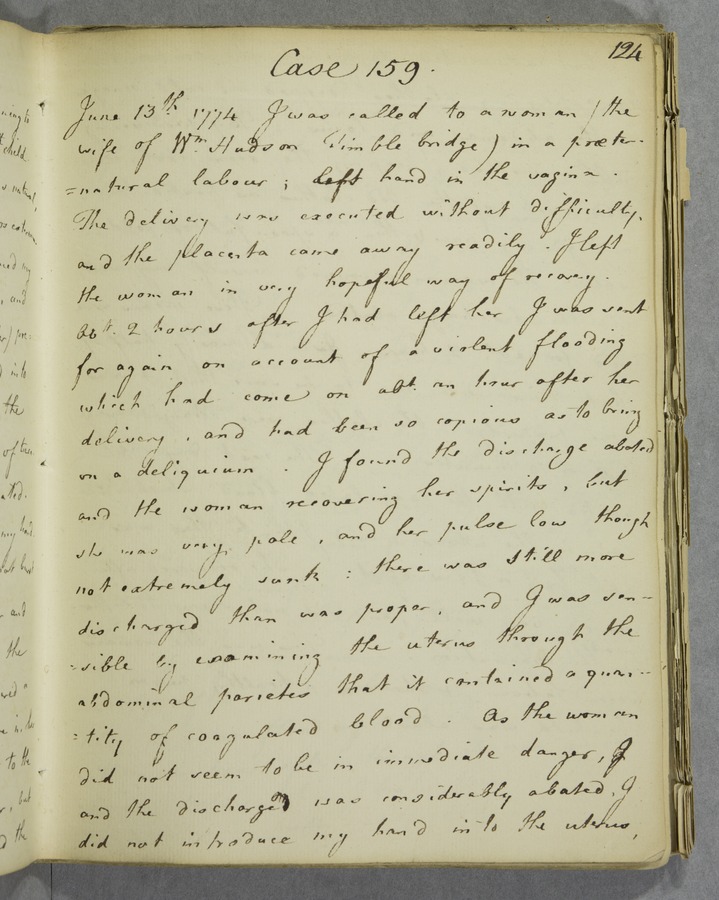 124
Case 159.
June 13th 1774 I was called to a woman (the
wife of Wm. Hudson Timble bridge) in a præter-
=natural labour; left hand in the vagina.
The delivery was executed without difficulty,
and the placenta came away readily. I left
the woman in very hopeful way of recovery.
Abt. 2 hours after I had left her I was sent
for again on account of a violent flooding
which had come on abt. an hour after her
delivery, and had been so copious as to bring
on a deliquium. I found the discharge abated
and the woman recovering her spirits, but
she was very pale, and her pulse low though
not extremely sunk: there was still more
discharged than was proper, and I was sen-
=sible by examining the uterus through the
abdominal parietes that it contained a quan-
=tity of coagulated blood. As the woman
did not seem to be in immediate danger, I
and the discharge was considerably abated, I
did not introduce my hand into the uterus,